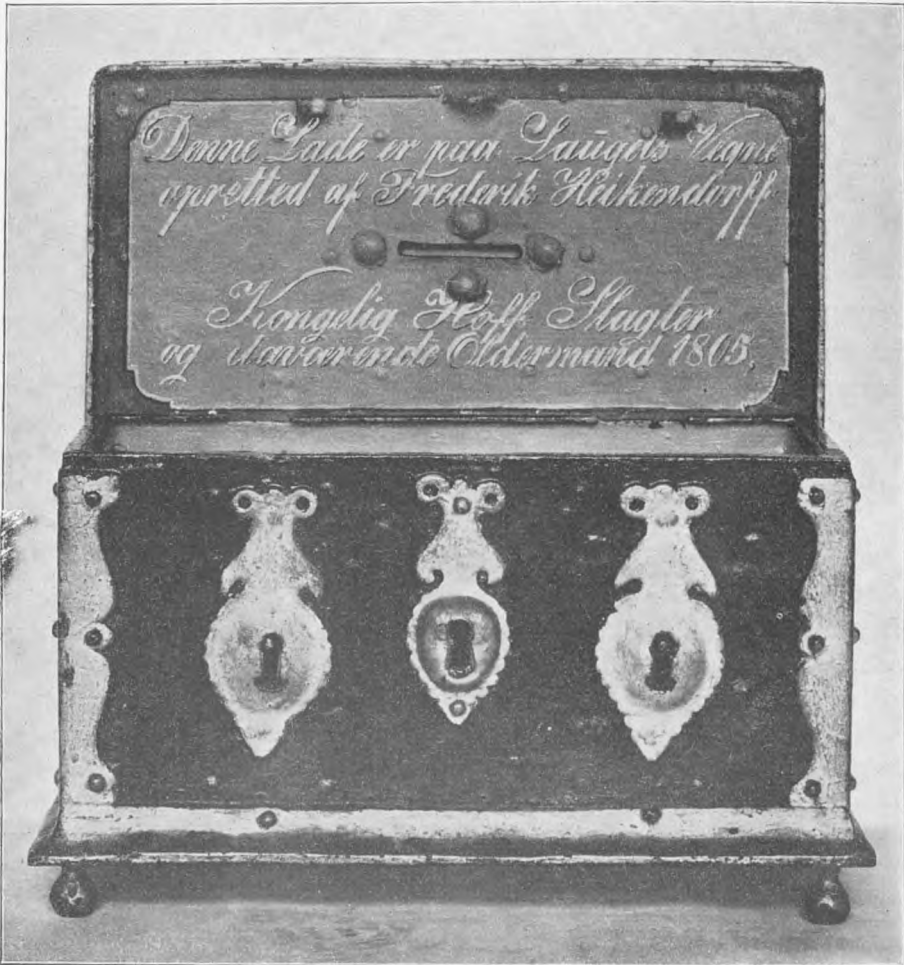 Denne Lade er paa Laugets Vegne
opretted af Frederik Heikendorff
Kongelig Hoff Slagter
og daværende Oldermand 1805.